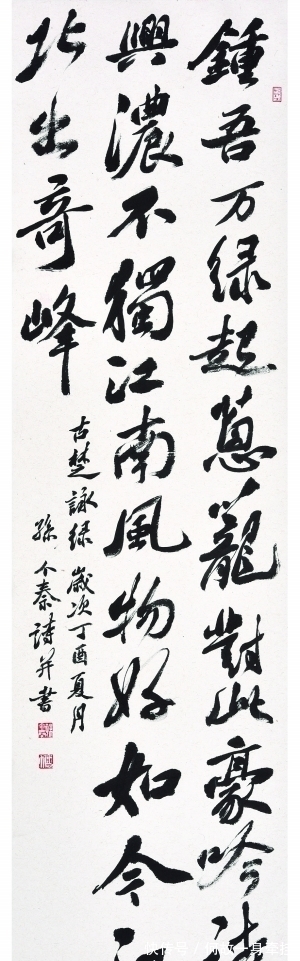 鍾吾万绿起葱蘢對此豪吟
興濃不獨江南風物好如今
北出奇峰
古楚詠绿 歲次丁酉夏月
孫个秦詩并書
快传号